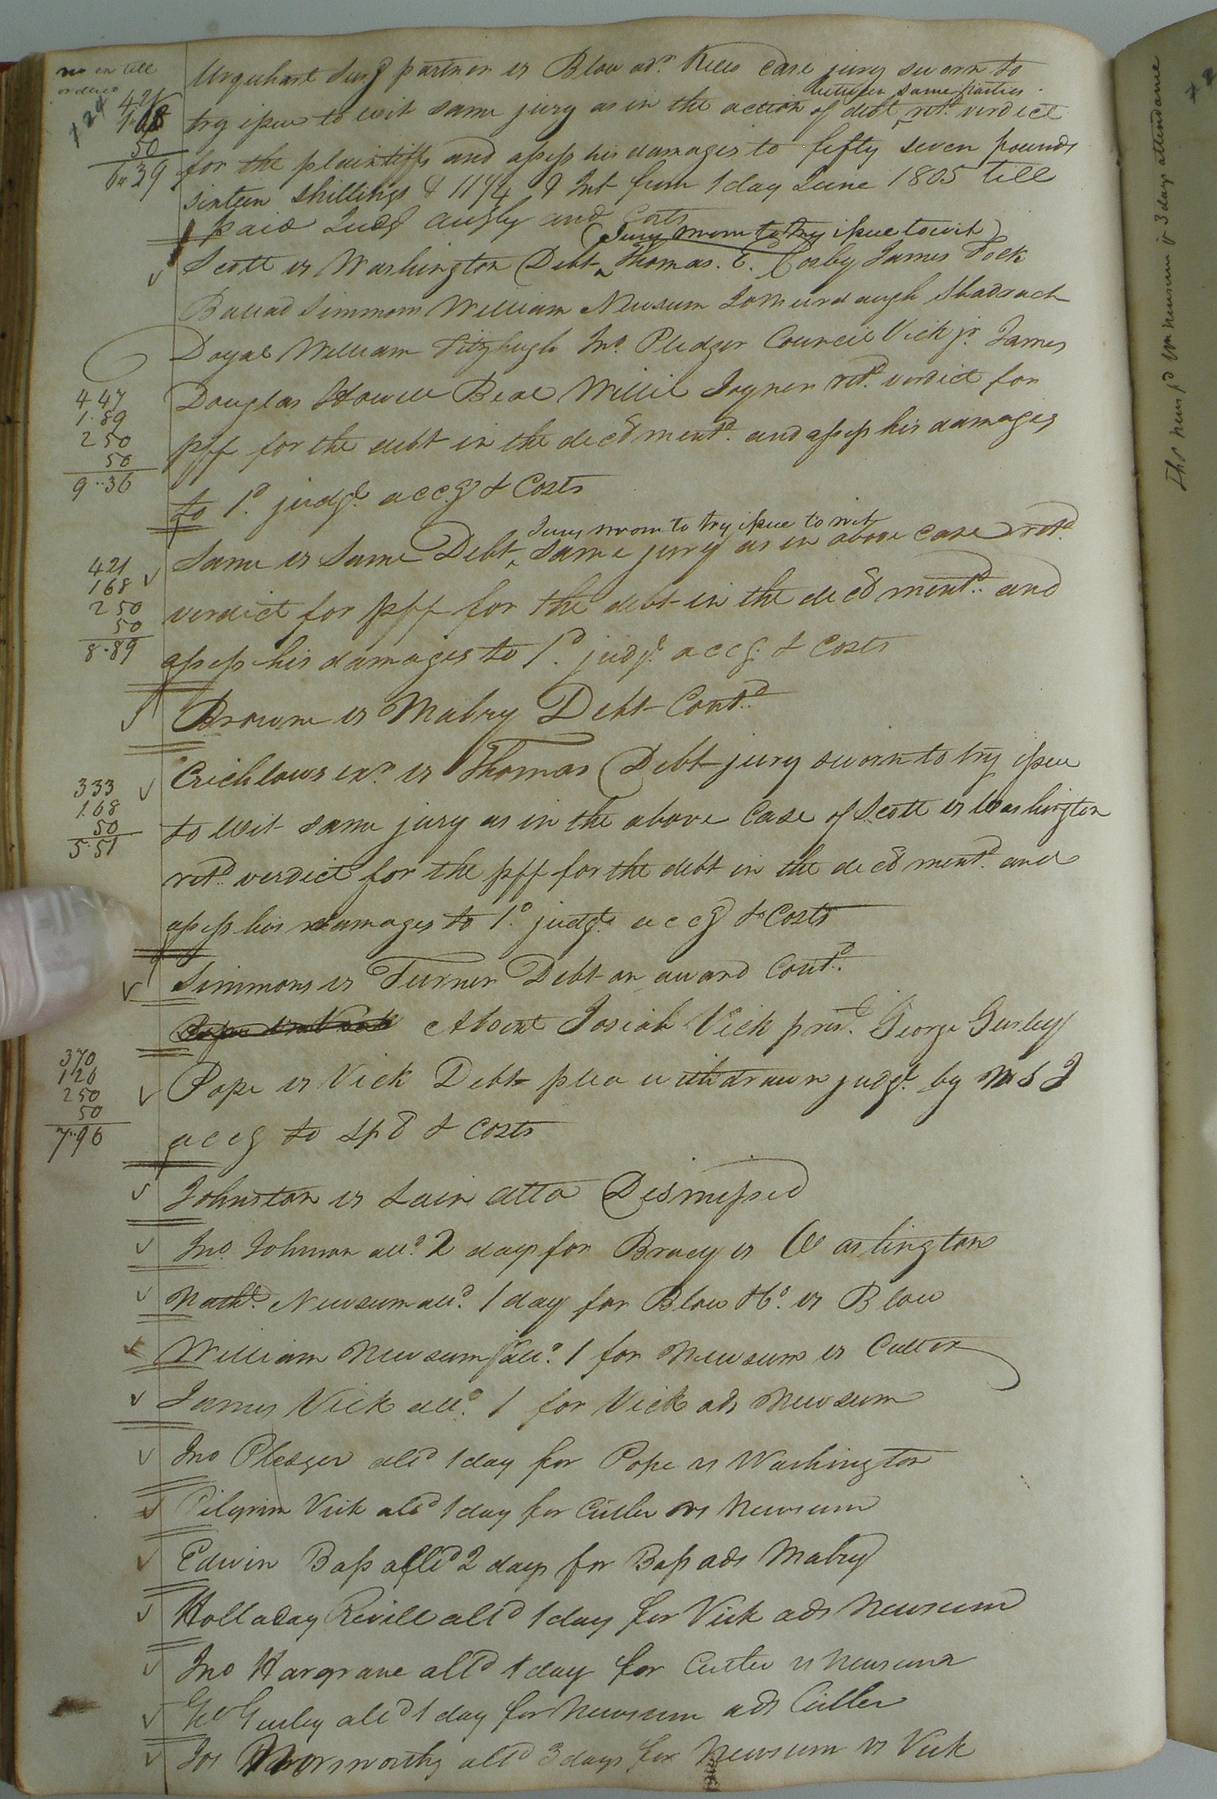 no ex till
ordered
Urquhart Surg partner vs Blow adr. Rees case jury sworn to
between same parties
try issue to wit same jury as in the action of debt retd. verdict
for the plaintiffs and assess his damages to fifty seven pounds
sixteen shillings & 11 1/4 & Int from 1 day June 1805 till
paid Judg accgly and Costs
421
168
50
6..39
Jury sworn to try issue to wit
Scott vs Washington Debt Thomas. E. Cosby James Fock
Balaad Simmons William Newsum Shadrach
Doyal William Fitzhugh Jno. Pledger Council Vick jr. James
Douglas Howell Beal Willie Joyner retd. verdict for
pff for the debt in the decd mentd. and assess his damages
to 1d. judgt. accg & Costs
447
1.89
250
50
9..36
Jury sworn to try issue to wit
Same vs Same Debt, Same jury as in above case retd.
verdict for pff for the debt in the decd mentd. and
assess his damages to 1d. judgt. accg. & Costs
421
168
250
50
8.89
Browne vs Mabry Debt Contd.
Crichlows exr. vs Thomas Debt jury sworn to try issue
to wit same jury as in the above Case of Scott vs Washington
retd. verdict for the pff for the debt in the decd mentd. and
assess his damages to 1d. judgt. accg & Costs
333
1.68
50
5.51
Simmons vs Turner Debt on award Contd.
Absent Josiah Vick prest. George Gurley
Pope vs Vick Debt plea withdrawn judgt. by N S J
accg to spd & Costs
370
126
250
50
7.96
Johnston vs Lain atta Dismissed
Jno. Johnson alld. 2 days for Bracy vs Washington
Nathl. Newsum alld. 1 day for Blow & Co. vs Blow
William Newsum alld. 1 for Newsum vs Cutler
James Vick alld. 1 for Vick ads Newsum
Jno Pledger alld 1 day for Pope vs Washington
Pilgrim Vick alld 1 day for Cutler vs Newsum
Edwin Bass alld 2 days for Bass ads Mabry
Holladay Revill alld 1 day for Vick ads Newsum
Jno Hargrave alld 1 day for Cutler vs Newsum
Go Gurley alld 1 day for Newsum ads Cutler
Jos Norsworthy alld 3 days for Newsum vs Vick
3 days attendance